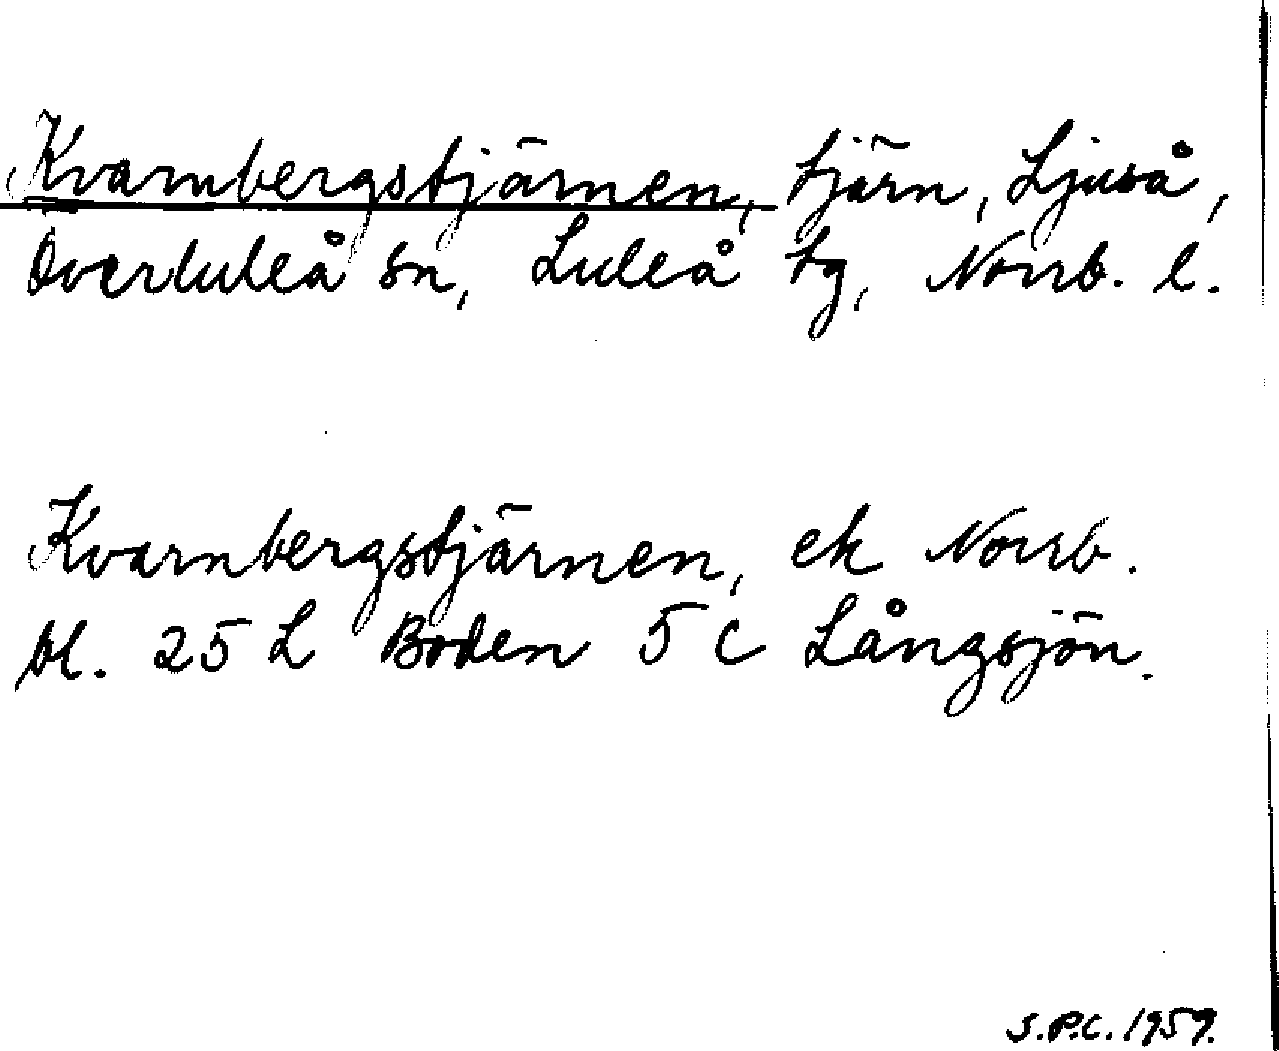 Kvarnbergstjärnen, tjärn, Ljuså,
Överluleå sn, Luleå tg, Norrb. l.
Kvarnbergstjärnen, ek Norrb.
bl. 25 L Boden 5 c Långsjön.
S.P.C. 1959.